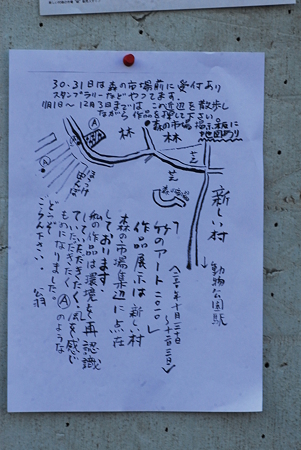 30.31日は森の市場前に受付あり
スタンプラリーなどやってます。
11月1日〜12月3日までは この近辺を散歩し
ながら作品を探して下さい。
森の市場 指示板に
地図あり
林
林
芝
芝
森の市場
A
A
新しい村
動物公園駅
「竹のアート二〇一〇」
(二〇一〇年十月三十日
〜十二月三日)
作品展示は新しい村
森の市場集辺に点在
しております。
私の作品は環境を再認識
していただきたく、風を感じ
ていただきたく Aのような
ものになりました。
どうぞ
ごらん下さい